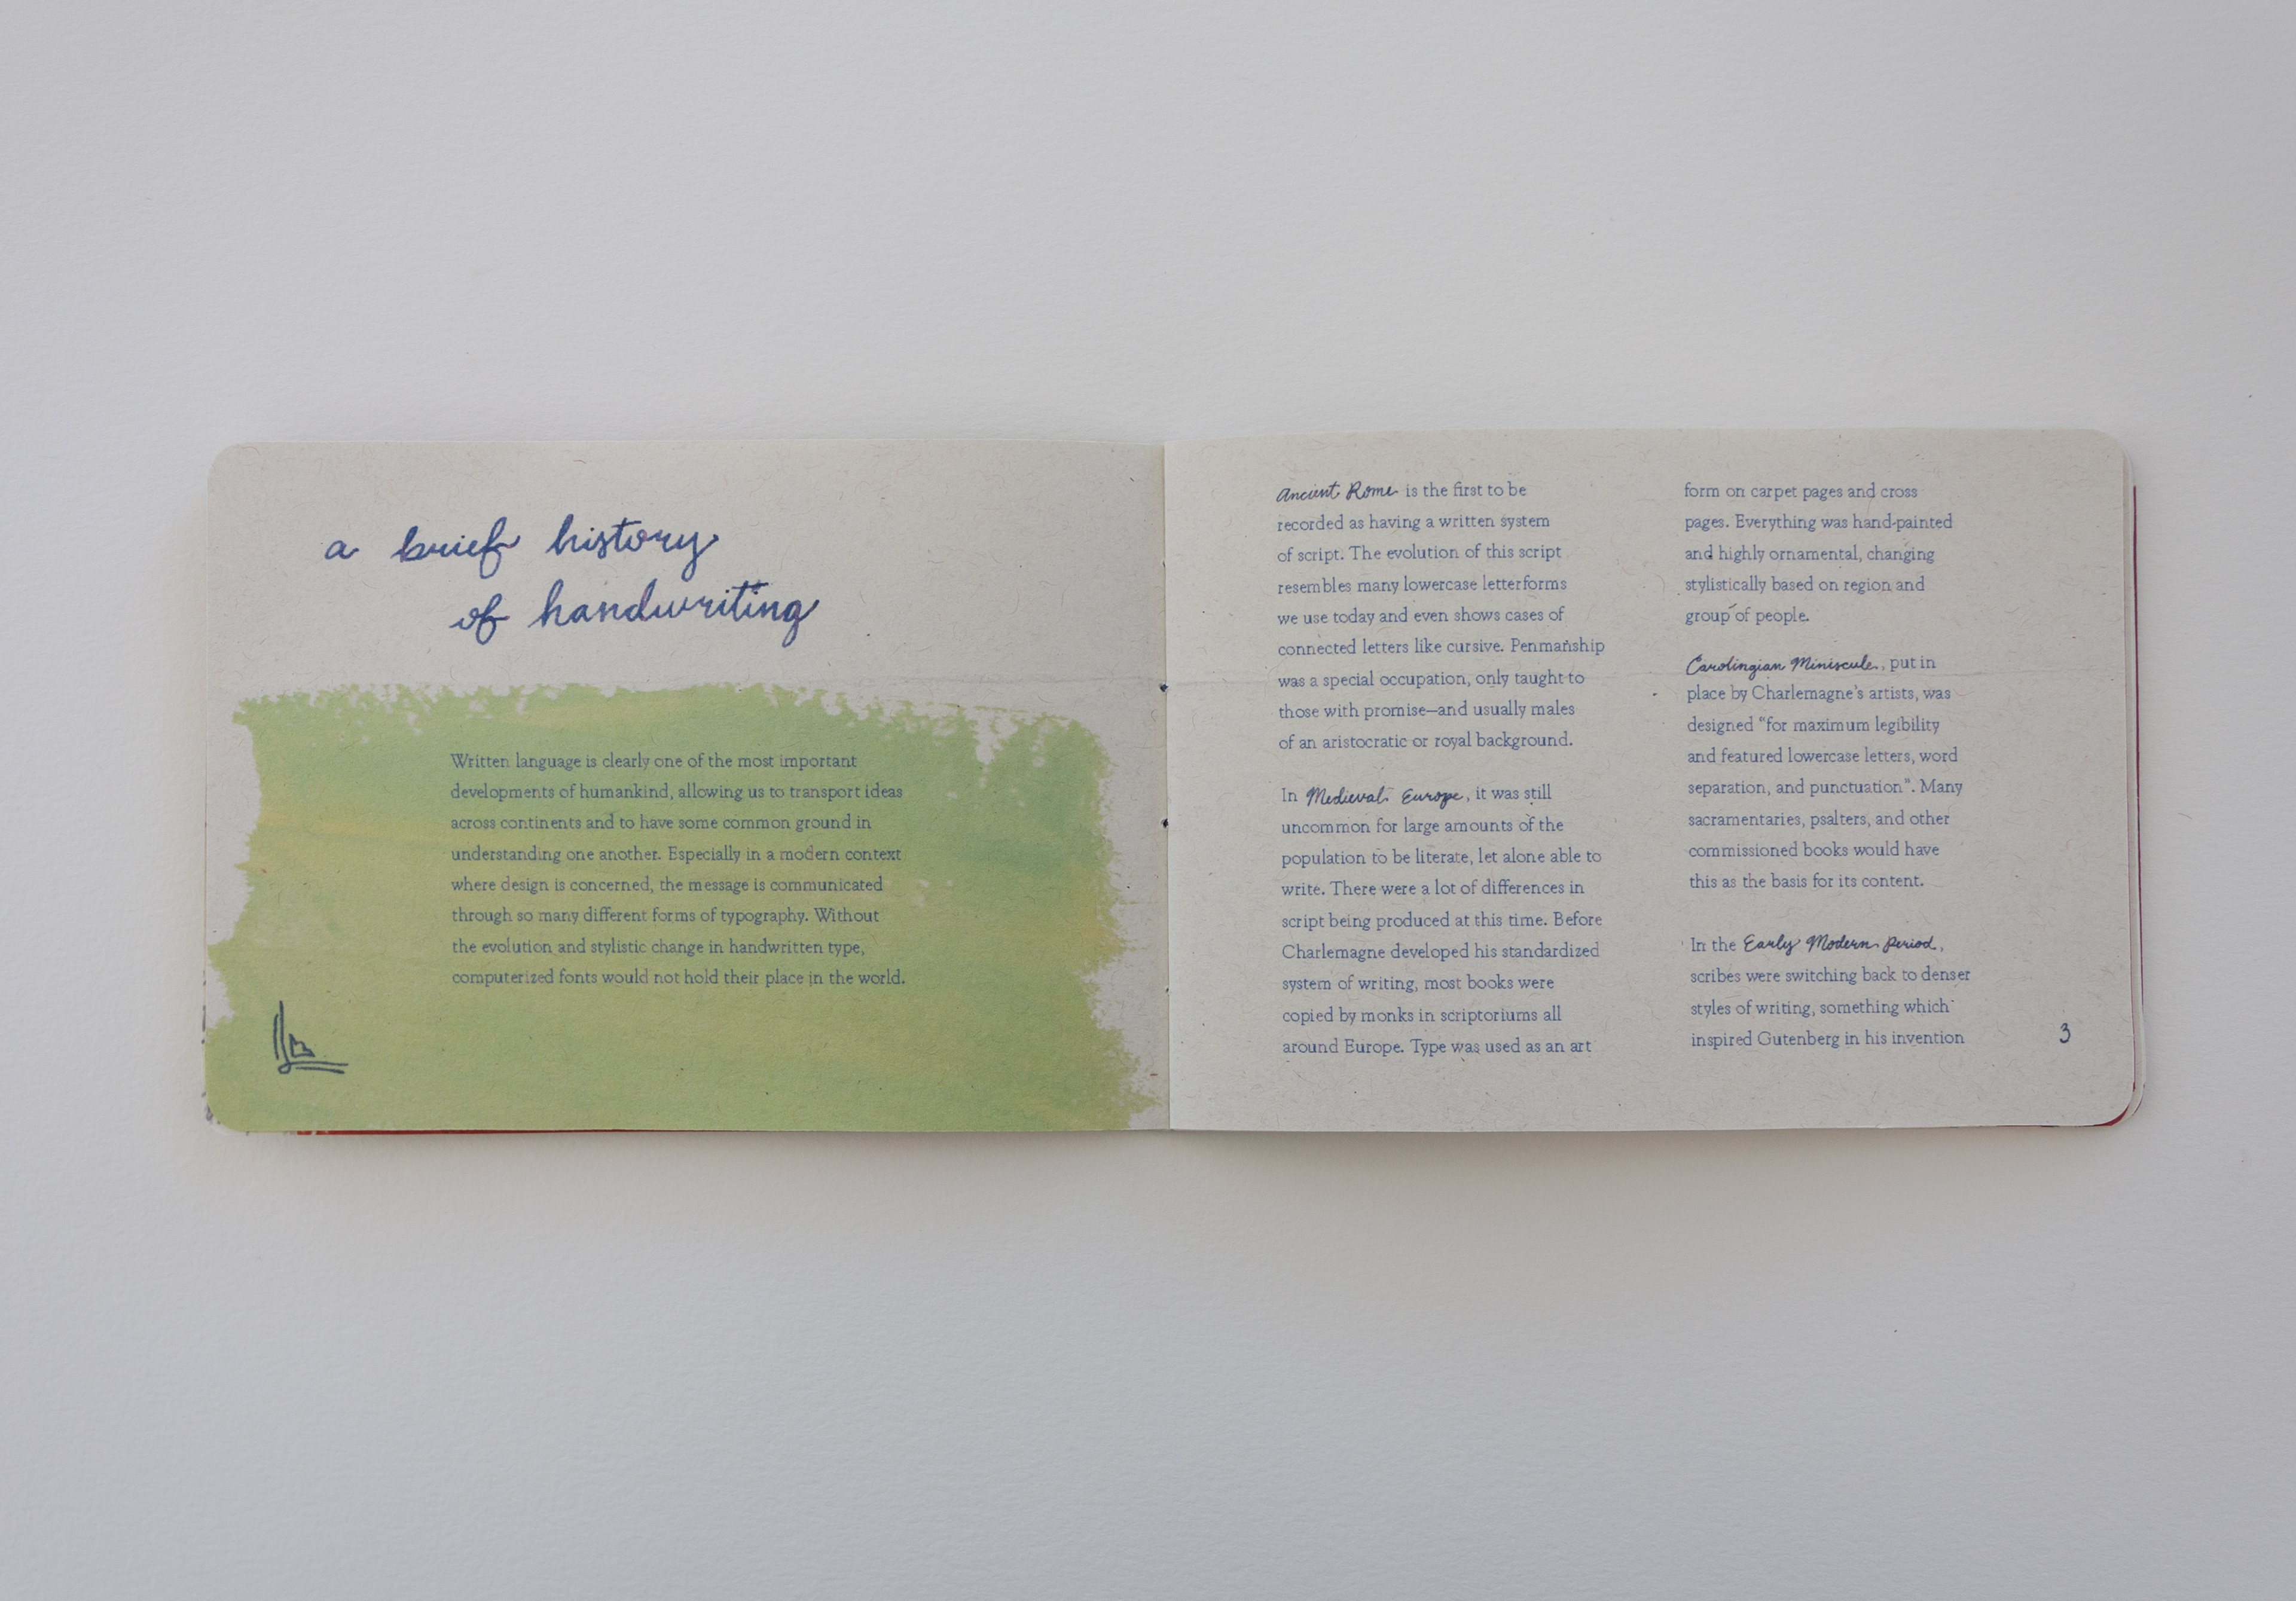 a brief history
of handwriting
Written language is clearly one of the most important
developments of humankind, allowing us to transport ideas
across continents and to have some common ground in
understanding one another. Especially in a modern context
where design is concerned, the message is communicated
through so many different forms of typography. Without
the evolution and stylistic change in handwritten type,
computerized fonts would not hold their place in the world.
Ancient Rome is the first to be
recorded as having a written system
of script. The evolution of this script
resembles many lowercase letterforms
we use today and even shows cases of
connected letters like cursive. Penmanship
was a special occupation, only taught to
those with promise—and usually males
of an aristocratic or royal background.
In Medieval Europe, it was still
uncommon for large amounts of the
population to be literate, let alone able to
write. There were a lot of differences in
script being produced at this time. Before
Charlemagne developed his standardized
system of writing, most books were
copied by monks in scriptoriums all
around Europe. Type was used as an art
form on carpet pages and cross
pages. Everything was hand-painted
and highly ornamental, changing
stylistically based on region and
group of people.
Carolingian Miniscule, put in
place by Charlemagne's artists, was
designed “for maximum legibility
and featured lowercase letters, word
separation, and punctuation”. Many
sacramentaries, psalters, and other
commissioned books would have
this as the basis for its content.
In the Early Modern Period,
scribes were switching back to denser
styles of writing, something which
inspired Gutenberg in his invention
3